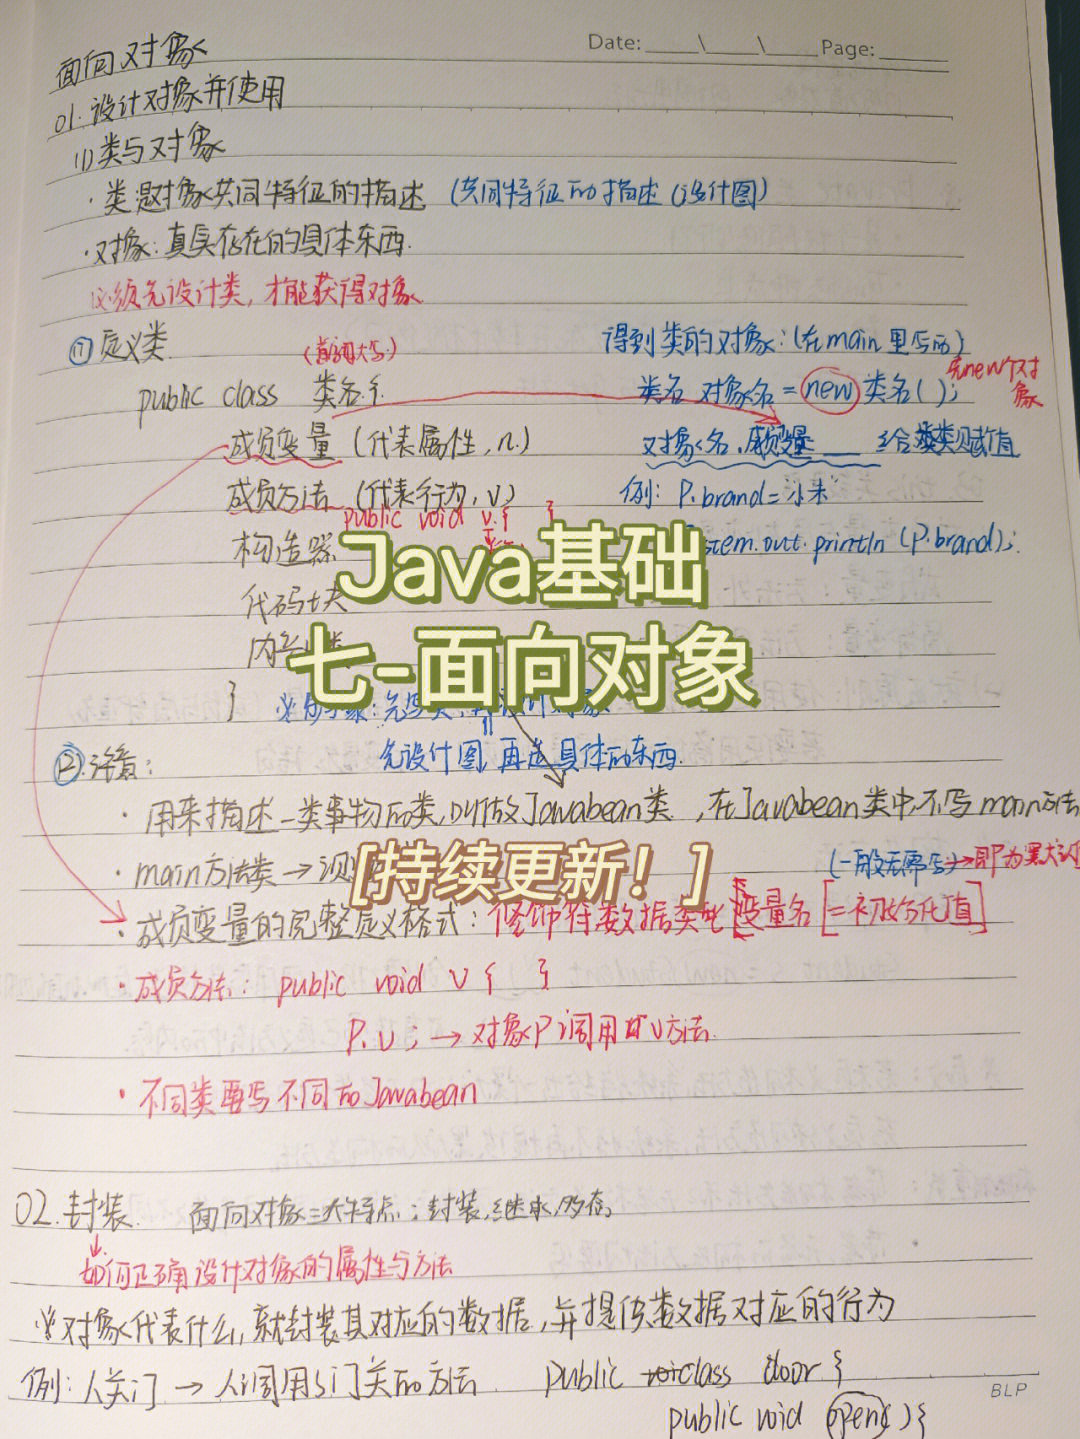 Date: ___\___\___ Page: ___
面向对象
01. 设计对象并使用
(1)类与对象
·类:对象共同特征的描述 (共同特征的描述(设计图)
·对象:真实存在的具体东西.
必须先设计类,才能获得对象
① 定义类
(首字母大写)
public class 类名{
成员变量 (代表属性, n.)
成员方法 (代表行为, v.)
public void v. { }
构造器
代码块
}
得到类的对象:(在main里写的)
类名 对象名 = new 类名();
先new个对象
对象名.成员变量 ___ 给类赋值
例: P.brand=小米
stem.out.println (P.brand);
Java基础
七-面向对象
先设计图,再造具体的东西.
② 注意:
·用来描述一类事物的类,叫做Javabean类,在Javabean类中,不写main方法
·main方法类→
[持续更新!]
(一般无需写)→即为默认
·成员变量的完整定义格式:修饰符 数据类型 变量名 [=初始化值]
·成员方法: public void v { }
P.v; → 对象P调用v方法.
·不同类要写不同的Javabean
02.封装. 面向对象三大特点:封装,继承,多态
↓
如何正确设计对象的属性与方法
※对象代表什么,就封装其对应的数据,并提供数据对应的行为
例:人关门 → 人调用了门关的方法 public class door {
public void open( ){
BLP